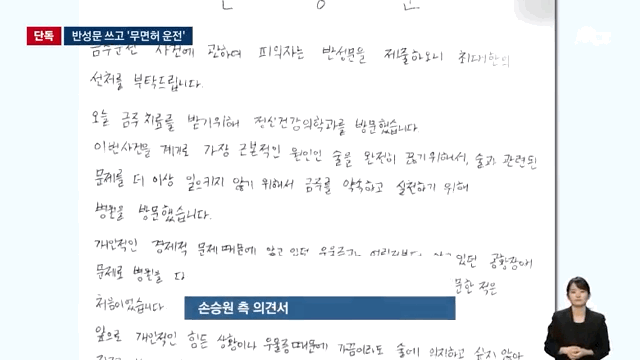 단독 반성문 쓰고 '무면허 운전'
jtbc
음주운전 사건에 관하여 피의자는 반성문을 제출하오니 최대한의
선처를 부탁드립니다.
오늘 금주 치료를 받기위해 정신건강의학과를 방문했습니다
이번사건을 계기로 가장 근본적인 원인인 술을 완전히 끊기위해서, 술과 관련된
문제를 더 이상 일으키지 않기 위해서 금주를 약속하고 실천하기 위해
병원을 방문했습니다.
개인적인 경제적 문제때문에 앓고 있던 우울증과 있던 공황장애
문제로 병원을 다 문한 적은
처음이었습니다
손승원 측 의견서
앞으로 개인적인 힘든 상황이나 우울증때문에 가끔이라도 술에 의지하고 싶지 않아